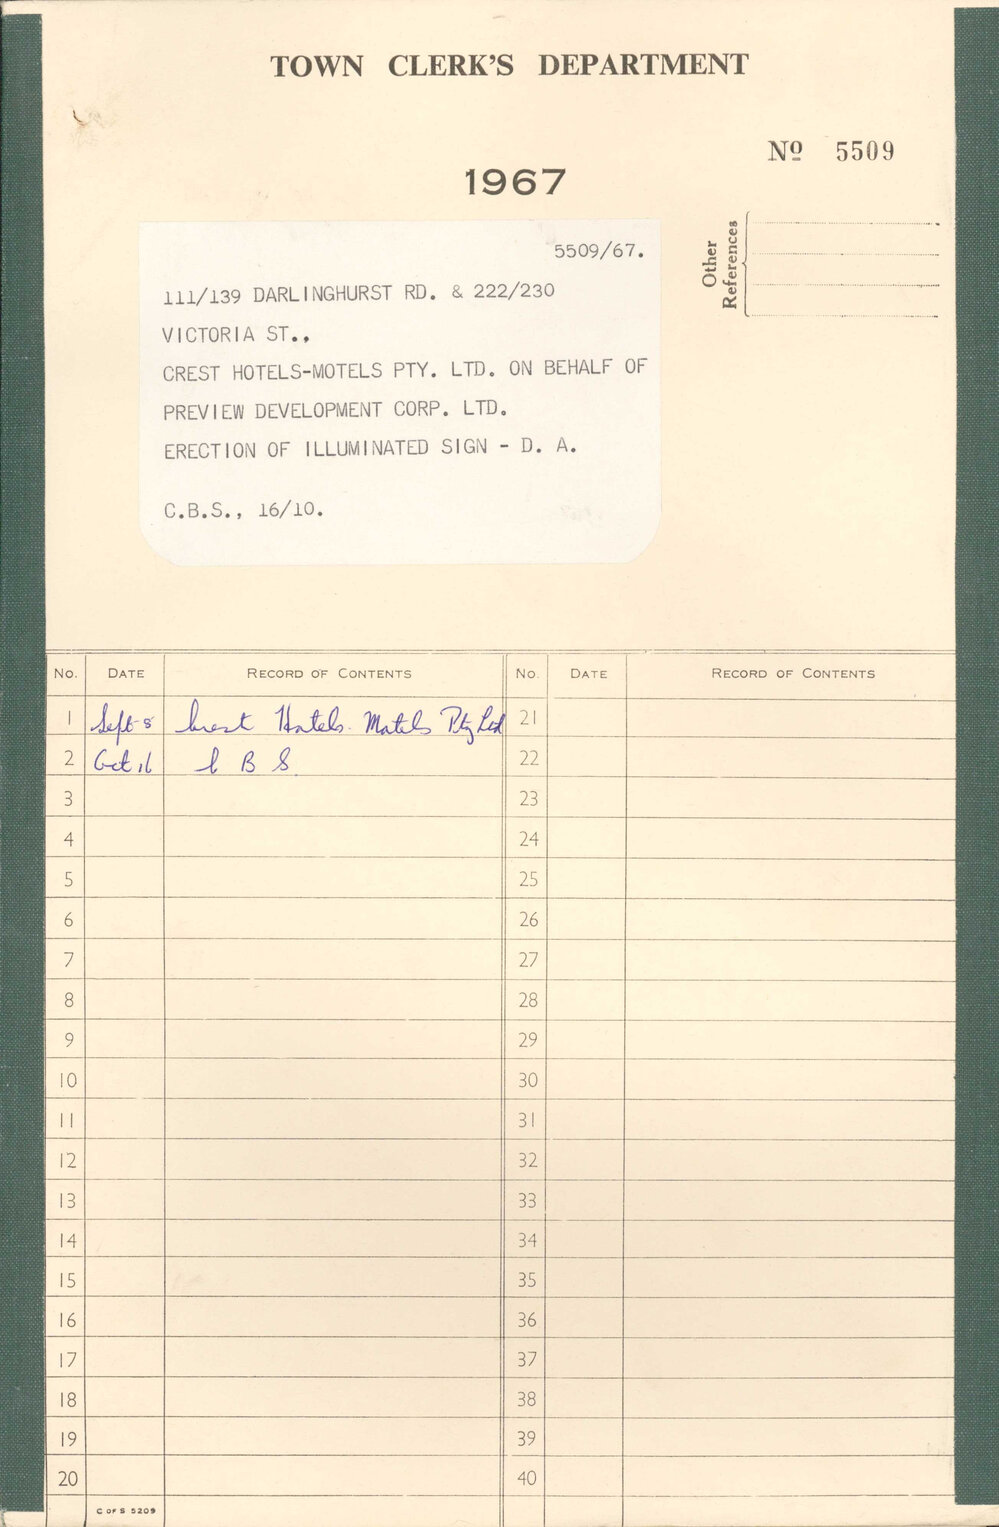 TOWN CLERK'S DEPARTMENT
Nº 5509
1967
Other
References
5509/67.
111/139 DARLINGHURST RD. & 222/230
VICTORIA ST.,
CREST HOTELS-MOTELS PTY. LTD. ON BEHALF OF
PREVIEW DEVELOPMENT CORP. LTD.
ERECTION OF ILLUMINATED SIGN - D. A.
C.B.S., 16/10.
No. DATE RECORD OF CONTENTS No. DATE RECORD OF CONTENTS
1 Sept 8 Crest Hotels. Motels Pty Ltd 21
2 Oct 16 C B S 22
3 23
4 24
5 25
6 26
7 27
8 28
9 29
10 30
11 31
12 32
13 33
14 34
15 35
16 36
17 37
18 38
19 39
20 40
C OF S 5209